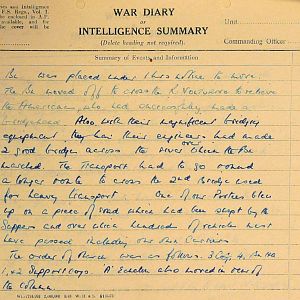 WAR DIARY
OR
INTELLIGENCE SUMMARY
(Delete heading not required).
Commanding Officer
Summary of Events and Information
Bn. was placed under 1 hrs notice to move.
The Bn moved off to cross the R VOLTURNO to relieve
the Americans, who had successfully made a
bridgehead. Also with their magnificent bridging
equipment their engineers had made
2 good bridges across the river over which the Bn
marched. The Transport had to go round
a longer route to cross the 2nd Bridge used
for heavy transport. One of our Porters blew
up on a piece of road which had been swept by the
Sappers and over which hundreds of vehicles must
have passed including our own Carriers
The order of March was as follows. 3 Coy, 4, Bn HQ
1, & 2 Support coys. A Echelon also moved in rear of
the column.